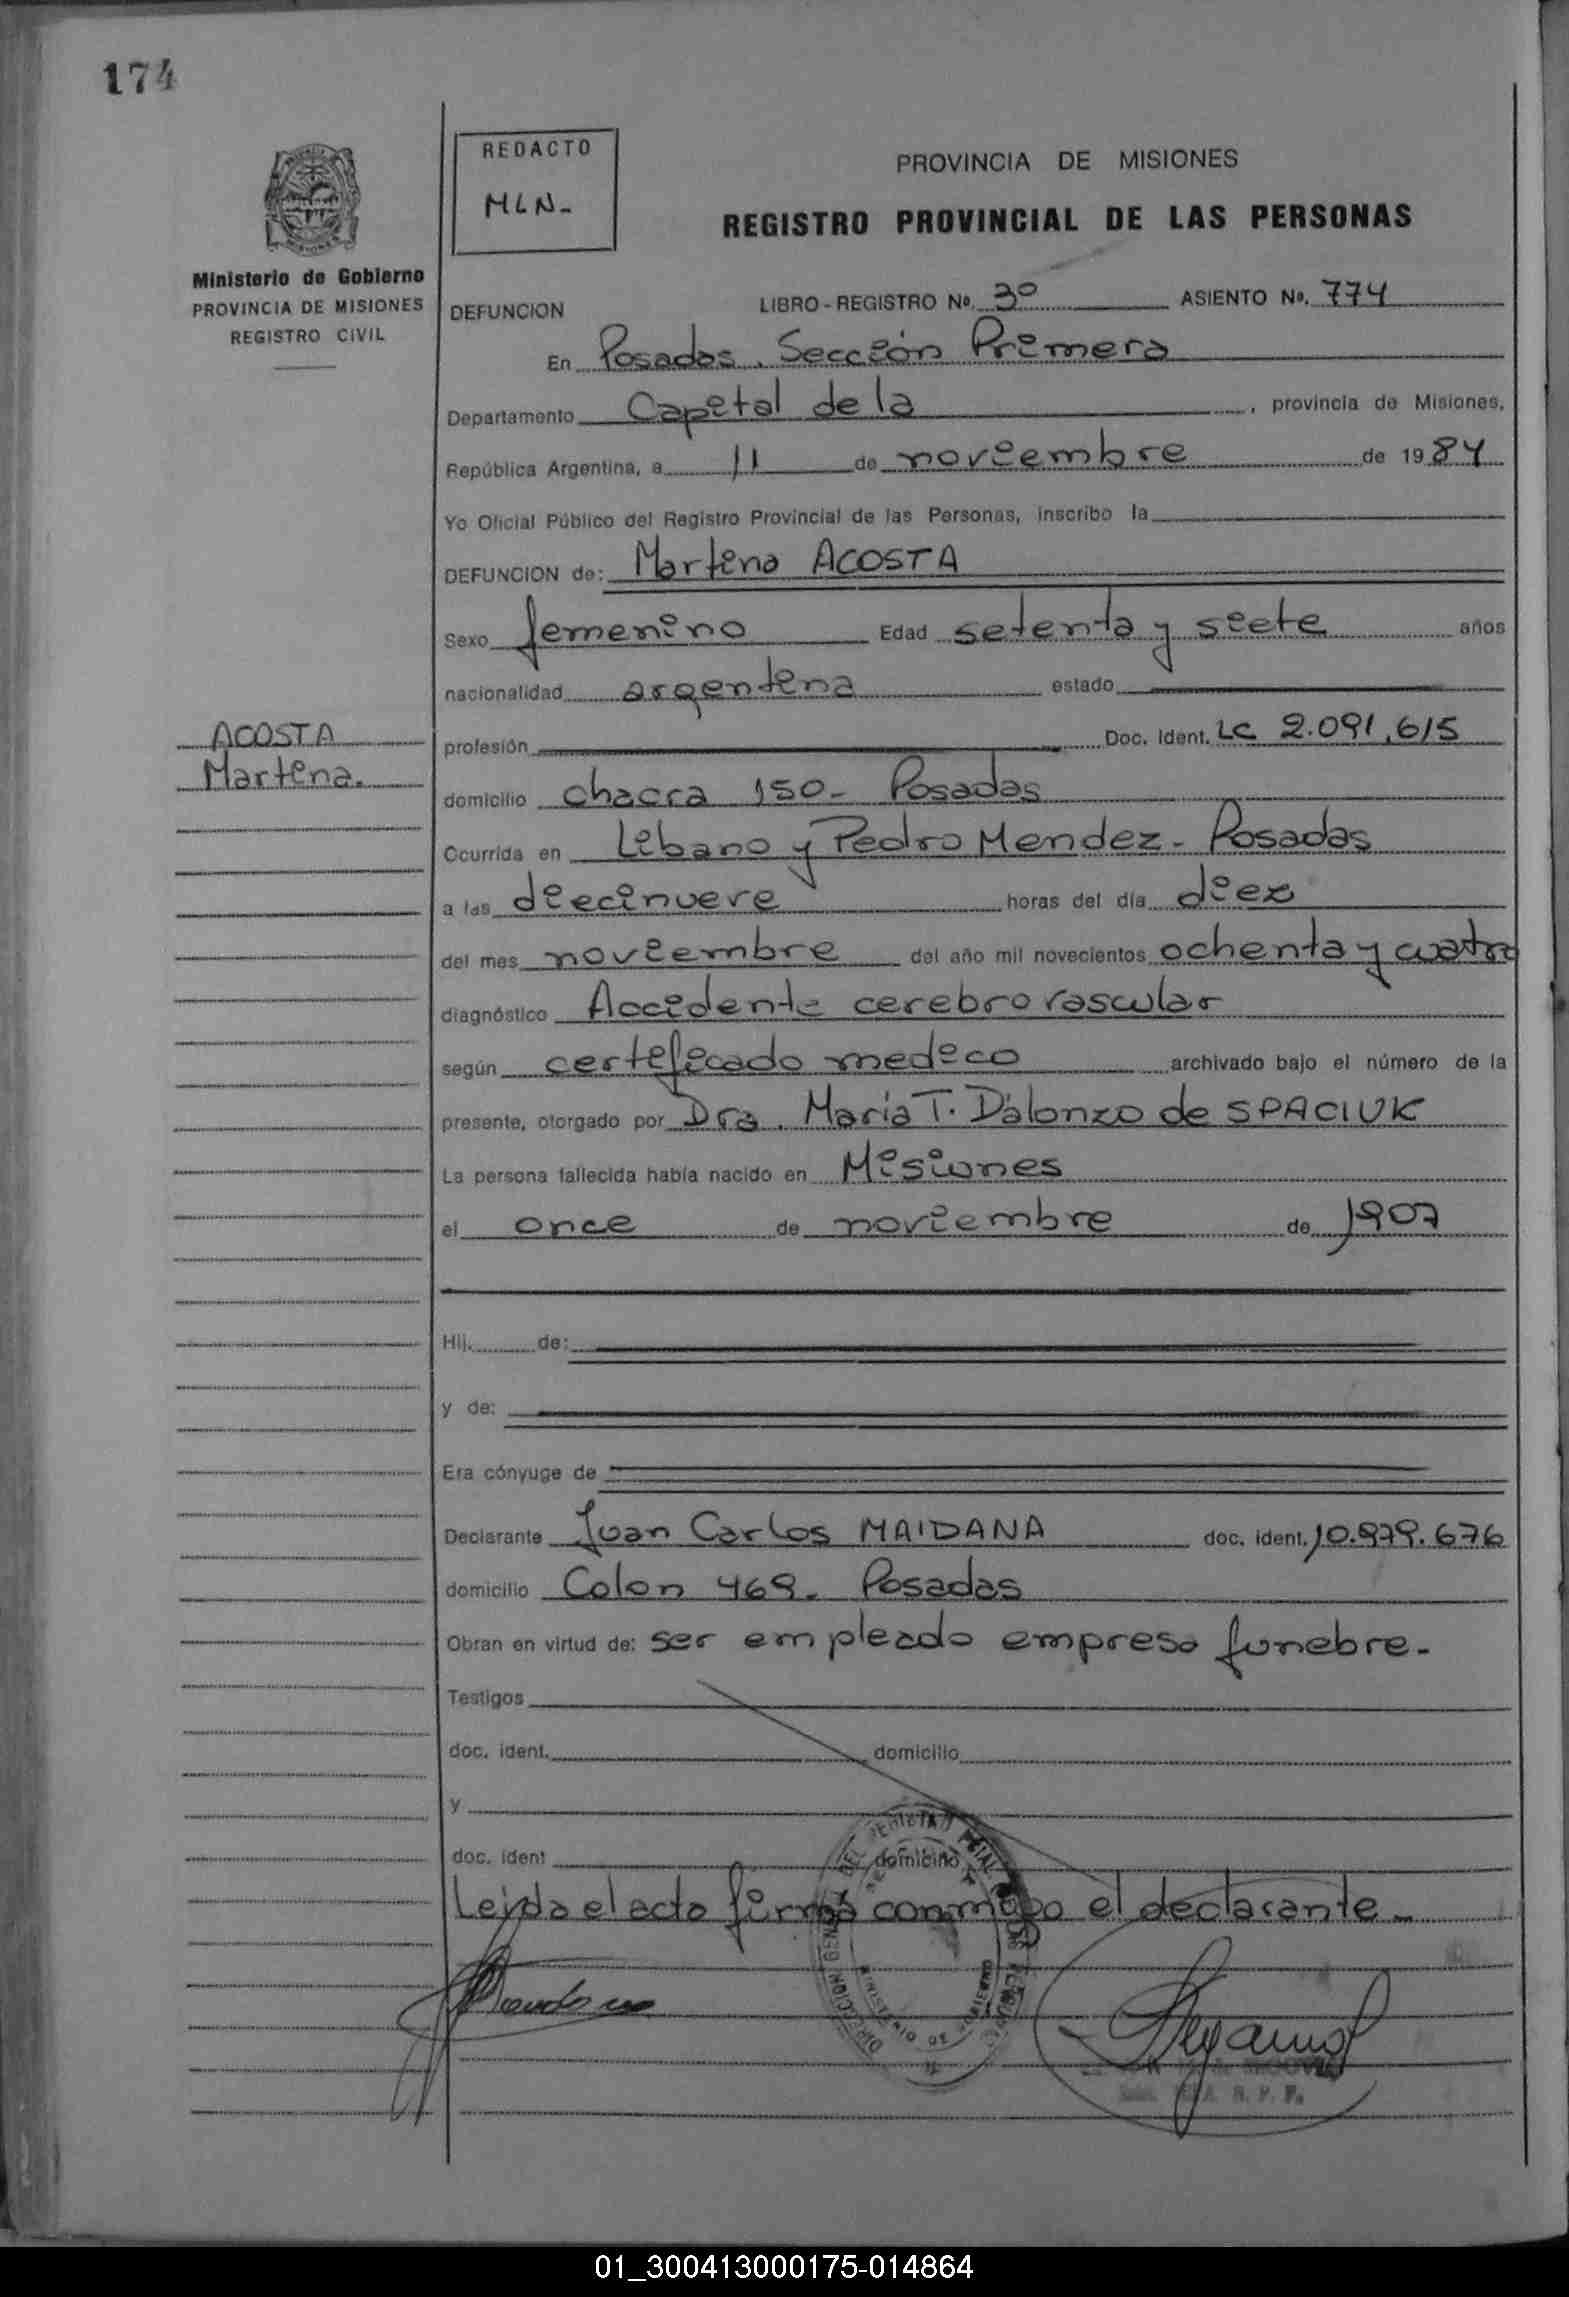 174
REDACTO
MLN-
PROVINCIA DE MISIONES
REGISTRO PROVINCIAL DE LAS PERSONAS
Ministerio de Gobierno
PROVINCIA DE MISIONES
REGISTRO CIVIL
DEFUNCION LIBRO - REGISTRO No. 3º ASIENTO No. 774
En Posadas, Sección Primera
Departamento Capital de la, provincia de Misiones,
República Argentina, a 11 de noviembre de 1984
Yo Oficial Público del Registro Provincial de las Personas, inscribo la
DEFUNCION de: Martina ACOSTA
Sexo femenino Edad setenta y siete años
nacionalidad argentina estado
ACOSTA
Martina.
profesión Doc. Ident. LC 2.091.615
domicilio chacra 150- Posadas
Ocurrida en Libano y Pedro Mendez- Posadas
a las diecinueve horas del día diez
del mes noviembre del año mil novecientos ochenta y cuatro
diagnóstico Accidente cerebro vascular
según certificado medico archivado bajo el número de la
presente, otorgado por Dra. María T. D'alonzo de SPACIUK
La persona fallecida había nacido en Misiones
el once de noviembre de 1907
Hij. de:
y de:
Era cónyuge de
Declarante Juan Carlos MAIDANA doc. ident. 10.979.676
domicilio Colon 469- Posadas
Obran en virtud de: ser empleado empresa funebre.-
Testigos
doc. ident. domicilio
y
doc. ident domicilio
Leida el acta firma conmigo el declarante-
DIRECCION DEL
MINISTERIO DE GOBIERNO
01_300413000175-014864